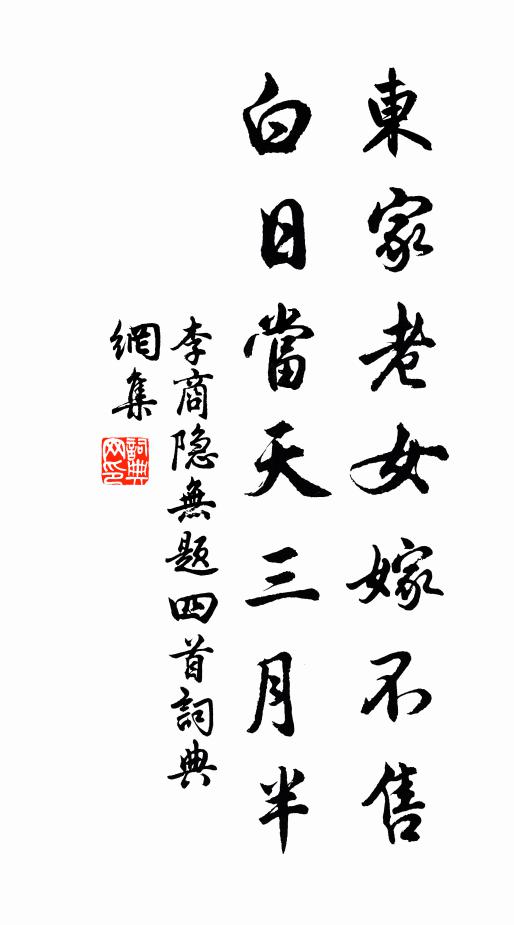 東家老女嫁不售
白日當天三月半
李商隐無题四首詞典
網集
詞典
网印